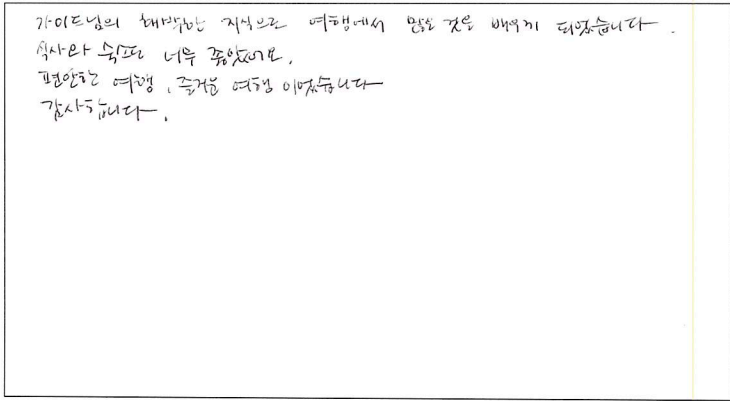 가이드님의 해박한 지식으로 여행에서 많은 것을 배우게 되었습니다.
식사와 숙소도 너무 좋았어요.
편안한 여행, 즐거운 여행 이었습니다
감사합니다.